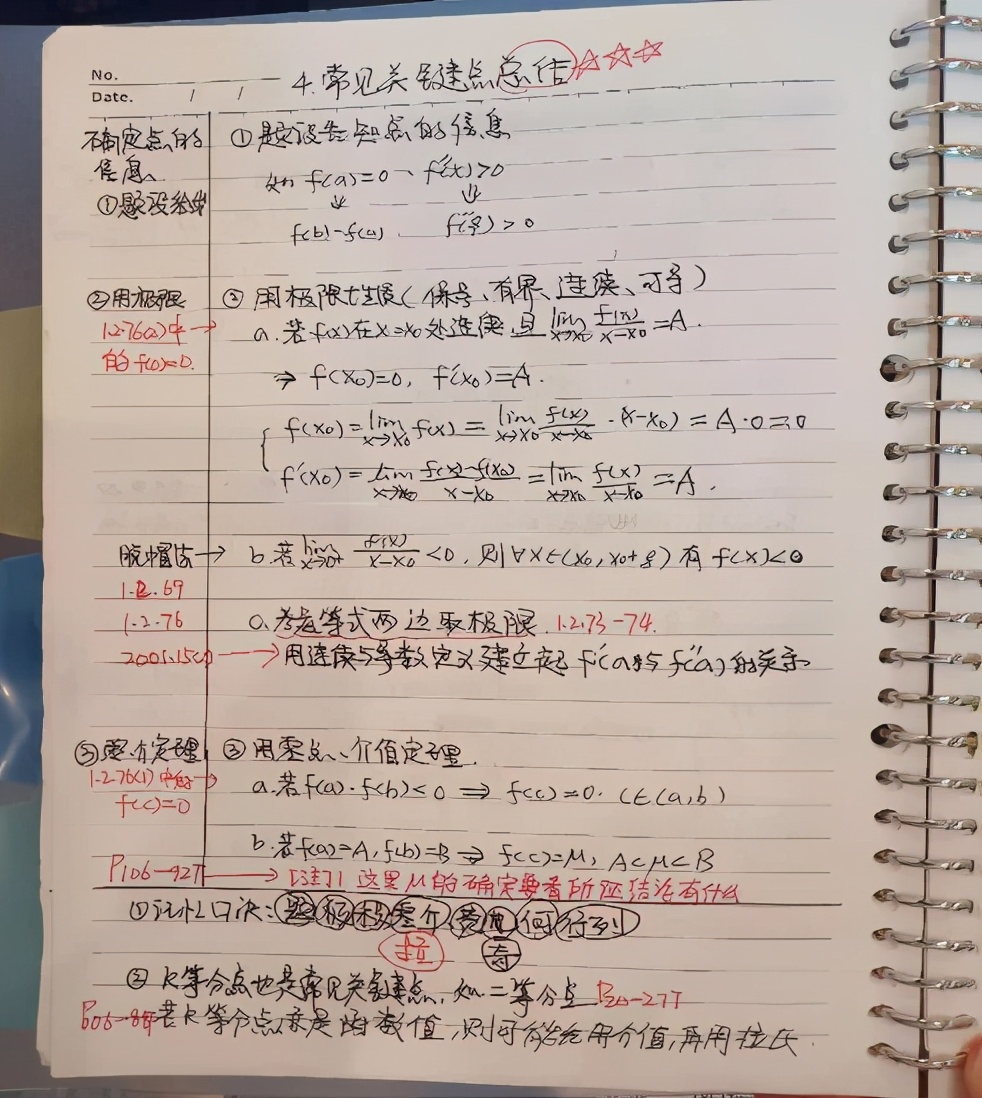 No.
Date. / /
4.常见关键点总结☆☆☆
确定点的
信息
①题设给出
①题设告知点的信息
如 f(a)=0、f''(x)>0
⇓ ⇓
f(b)-f(a) f''(ξ)>0
②用极限
1.2.76(2)中→
的f(0)=0.
②用极限性质(保号、有界、连续、可导)
a.若f(x)在x=x₀处连续,且lim x→x₀ f(x)/(x-x₀)=A.
⇒ f(x₀)=0, f'(x₀)=A.
{ f(x₀)=lim x→x₀ f(x)=lim x→x₀ f(x)/(x-x₀)·(x-x₀)=A·0=0
f'(x₀)=lim x→x₀ (f(x)-f(x₀))/(x-x₀)=lim x→x₀ f(x)/(x-x₀)=A.
脱帽法→
b.若lim x→x₀+ f(x)/(x-x₀)<0,则∀x∈(x₀,x₀+δ)有f(x)<0
1.2.69
1.2.76
c.考虑等式两边取极限.1.2.73-74.
→用连续与导数定义建立起f'(a)与f''(a)的关系
③零.介定理
1.2.76(1)中的→
f(c)=0
③用零点、介值定理.
a.若f(a)·f(b)<0⇒f(c)=0. c∈(a,b)
b.若f(a)=A,f(b)=B⇒f(c)=μ, A<μ<B
P106-92T→[注]这里μ的确定要看所证结论有什么
①记忆口诀:题极积零介费 何行列
拉
②k等分点也是常见关键点,如二等分点
若k等分点亦是函数值,则可能先用介值,再用拉氏.